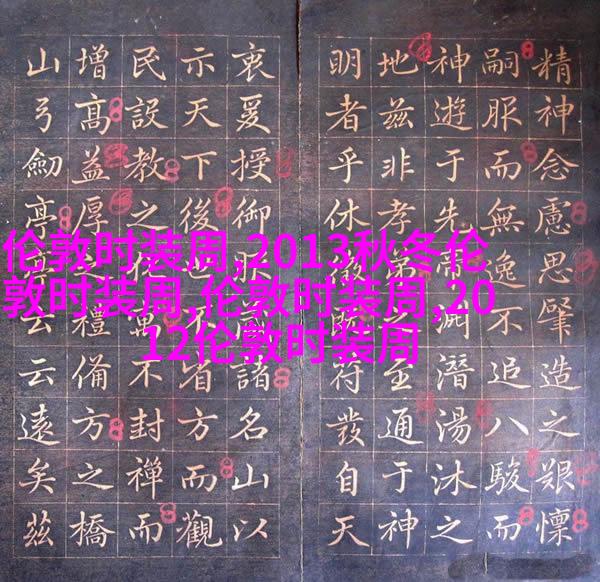 伦敦时装周,2013秋冬伦
敦时装周,伦敦时装周,20
12伦敦时装周
精神念慮思肇造之艱懍
嗣服而無逸不追八駿而
神遊于先帝淵潛湯沐之
地茲非孝弟至通于神
明者乎休徵符發自天
衷爰授御服諸名山以
示天下後世不省方而觀
民設教之寓不封禪而
增高益厚之禮備方之橋
山弓劍亭亭云云遠矣茲